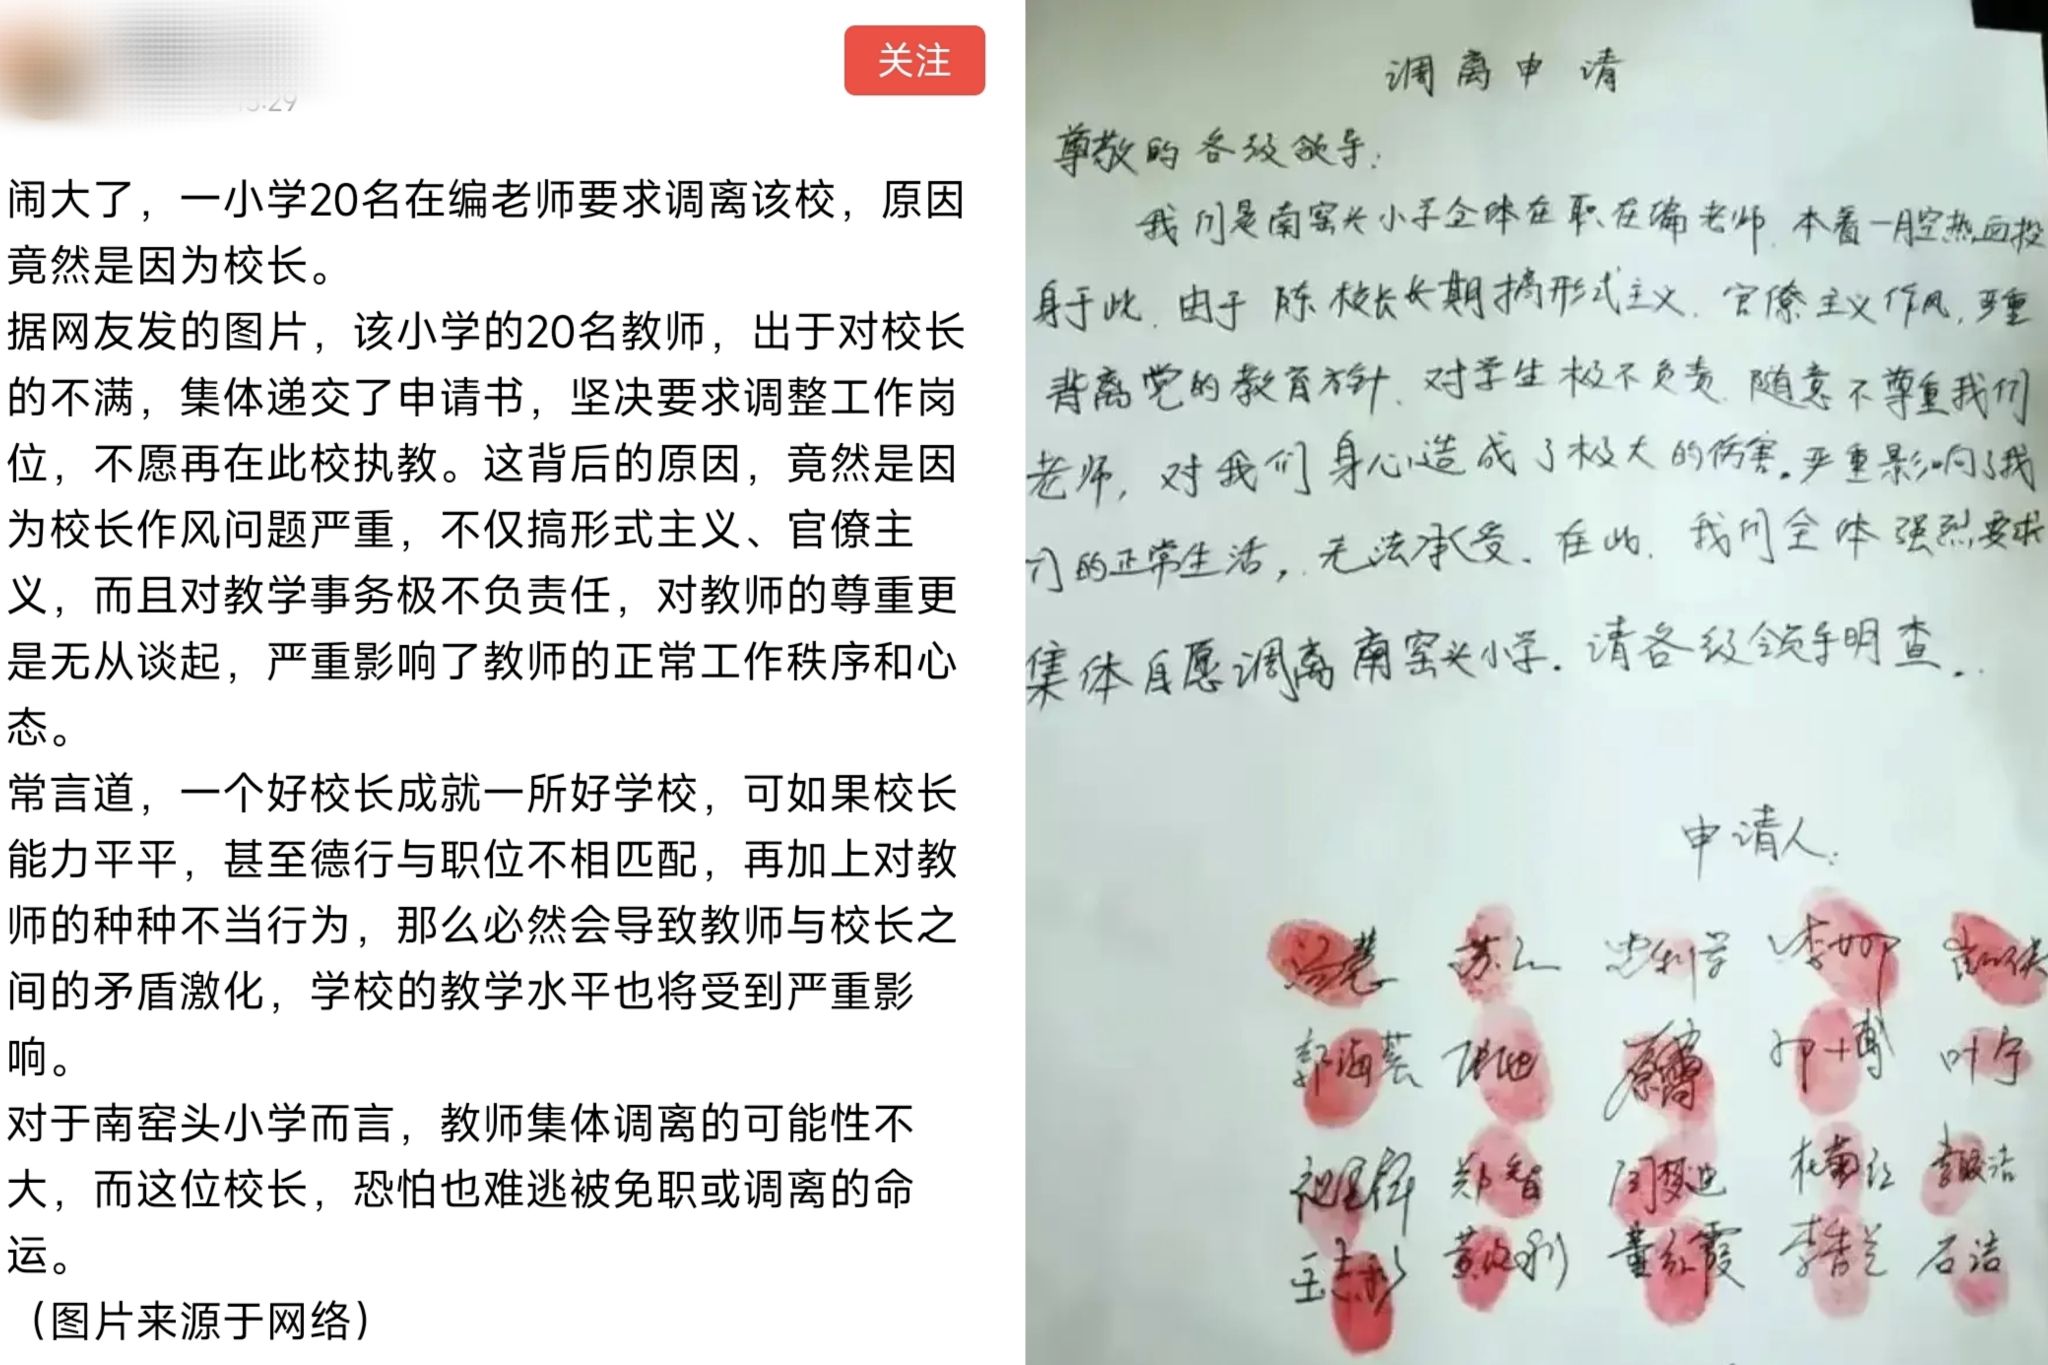 关注
闹大了，一小学20名在编老师要求调离该校，原因
竟然是因为校长。
据网友发的图片，该小学的20名教师，出于对校长
的不满，集体递交了申请书，坚决要求调整工作岗
位，不愿再在此校执教。这背后的原因，竟然是因
为校长作风问题严重，不仅搞形式主义、官僚主
义，而且对教学事务极不负责任，对教师的尊重更
是无从谈起，严重影响了教师的正常工作秩序和心
态。
常言道，一个好校长成就一所好学校，可如果校长
能力平平，甚至德行与职位不相匹配，再加上对教
师的种种不当行为，那么必然会导致教师与校长之
间的矛盾激化，学校的教学水平也将受到严重影
响。
对于南窑头小学而言，教师集体调离的可能性不
大，而这位校长，恐怕也难逃被免职或调离的命
运。
（图片来源于网络）
调离申请
尊敬的各级领导：
我们是南窑头小学全体在职在编老师，本着一腔热血投
身于此，由于陈校长长期搞形式主义、官僚主义作风，严重
背离党的教育方针，对学生极不负责，随意不尊重我们
老师，对我们身心造成了极大的伤害。严重影响了我
们的正常生活，无法承受。在此，我们全体强烈要求
集体自愿调离南窑头小学。请各级领导明查。
申请人：
李娜
郭海芸 叶宁
郑智 闫梦迪 李姣洁
王志彩 董红霞 李香兰 石洁